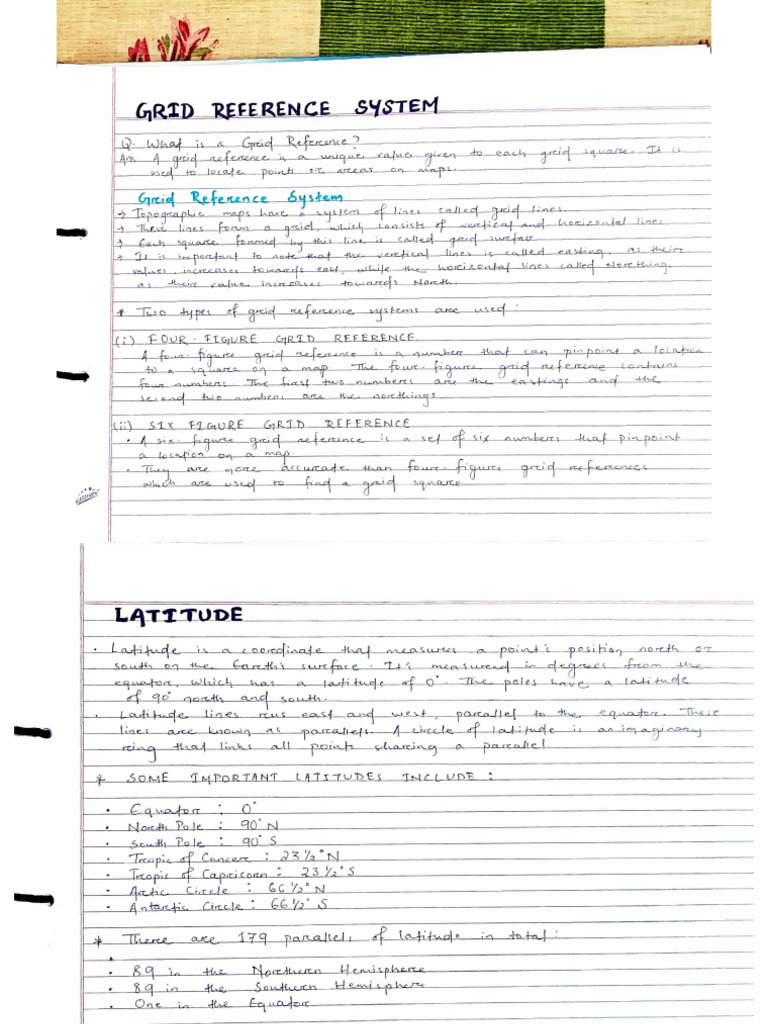 GRID REFERENCE SYSTEM
Q. What is a Grid Reference?
Ans A grid reference is a unique value given to each grid square. It is
used to locate points or areas on maps.
Grid Reference System
→ Topographic maps have a system of lines called grid lines.
→ These lines form a grid, which consists of vertical and horizontal lines
→ Each square formed by this line is called grid surface
→ It is important to note that the vertical lines is called easting, as their
values increases towards east, while the horizontal lines called Northing,
as their value increases towards North.
* Two types of grid reference systems are used:
(i) FOUR-FIGURE GRID REFERENCE
A four-figure grid reference is a number that can pinpoint a location
to a square on a map. The four-figure grid reference contains
four numbers. The first two numbers are the eastings and the
second two numbers are the northings
(ii) SIX FIGURE GRID REFERENCE
• A six-figure grid reference is a set of six numbers that pinpoint
a location on a map.
• They are more accurate than four-figure grid references
which are used to find a grid square
LATITUDE
• Latitude is a coordinate that measures a point's position north or
south on the Earth's surface. It's measured in degrees from the
equator, which has a latitude of 0°. The poles have a latitude
of 90° north and south.
• Latitude lines run east and west, parallel to the equator. These
lines are known as parallels. A circle of latitude is an imaginary
ring that links all points sharing a parallel.
* SOME IMPORTANT LATITUDES INCLUDE:
• Equator : 0°
• North Pole : 90° N
• South Pole : 90° S
• Tropic of Cancer : 23 1/2° N
• Tropic of Capricorn : 23 1/2° S
• Arctic Circle : 66 1/2° N
• Antarctic Circle : 66 1/2° S
* There are 179 parallels of latitude in total:
•
• 89 in the Northern Hemisphere
• 89 in the Southern Hemisphere
• One in the Equator